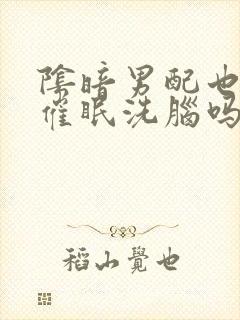 陰暗男配也
催眠洗腦吗
稻山覺也